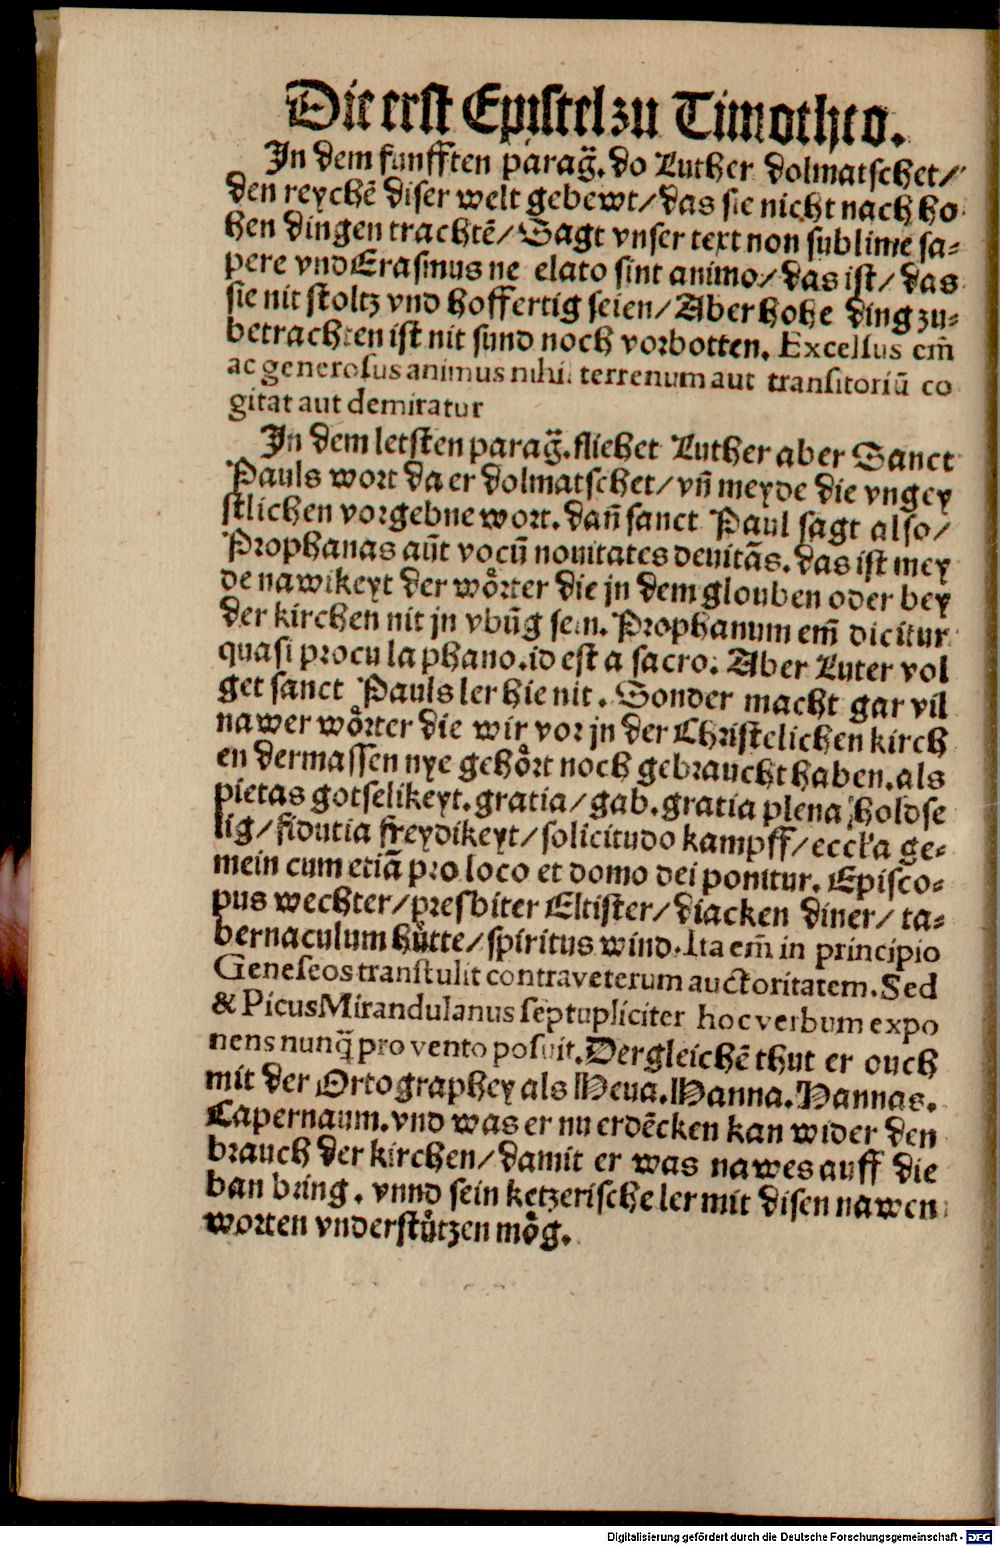 Die erst Epistel zu Timotheo.
In dem funfften parag̃. do Luther dolmatschet/
den reychẽ diser welt gebewt/das sie nicht nach ho
hen dingen trachtẽ/Sagt vnser text non sublime sa-
pere vnd Erasmus ne elato sint animo/das ist/das
sie nit stoltz vnd hoffertig seien/Aber hohe ding zu-
betrachten ist nit sund noch vorbotten. Excelsus em̃
ac generosus animus nihil terrenum aut transitoriũ co
gitat aut demiratur
In dem letsten parag̃. fliehet Luther aber Sanct
Pauls wort da er dolmatschet/vñ meyde die vngey
stlichen vorgebne wort. dañ sanct Paul sagt also/
Prophanas aũt vocũ nouitates deuitãs. das ist mey
de nawikeyt der wörter die jn dem glouben oder bey
der kirchen nit jn vbũg sein. Prophanum em̃ dicitur
quasi procu la phano. id est a sacro. Aber Luter vol
get sanct Pauls ler hie nit. Sonder macht gar vil
nawer wörter die wir vor jn der Christelichen kirch
en dermassen nye gehört noch gebraucht haben. als
pietas gotselikeyt. gratia/gab. gratia plena holdse
lig/fidutia freydikeyt/solicitudo kampff/eccľa ge-
mein cum etiã pro loco et domo dei ponitur. Episco-
pus wechter/presbiter Eltister/diacken diner/ta-
bernaculum hütte/spiritus wind. Ita em̃ in principio
Geneseos transtulit contra veterum auctoritatem. Sed
& Picus Mirandulanus septupliciter hoc verbum expo
nens nunq̃ pro vento posuit. Dergleichẽ thut er ouch
mit der Ortographey als Heua. Hanna. Hannas.
Capernaum. vnd was er nu erdẽcken kan wider den
brauch der kirchen/damit er was nawes auff die
ban bring. vnnd sein ketzerische ler mit disen nawen
worten vnderstützen mög.
Digitalisierung gefördert durch die Deutsche Forschungsgemeinschaft - DFG